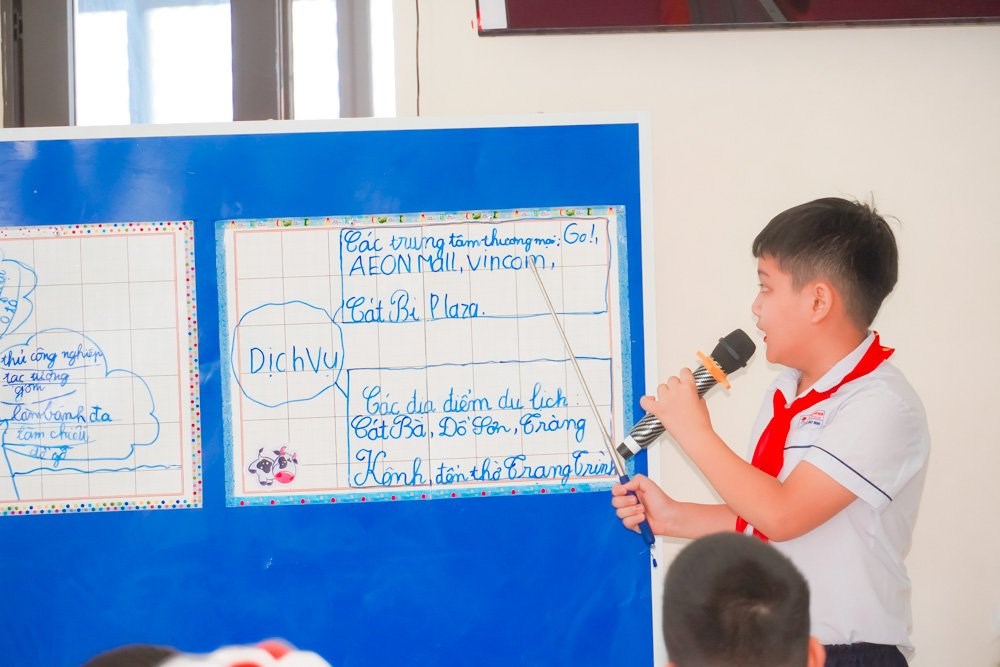 thủ công nghiệp
tạc tượng
gốm
làm bánh đa
làm chiếu
đồ gỗ
Dịch Vụ
Các trung tâm thương mại: Go!,
AEON Mall, Vincom,
Cát Bi Plaza.
Các địa điểm du lịch:
Cát Bà, Đồ Sơn, Tràng
Kênh, đền thờ Trạng Trình